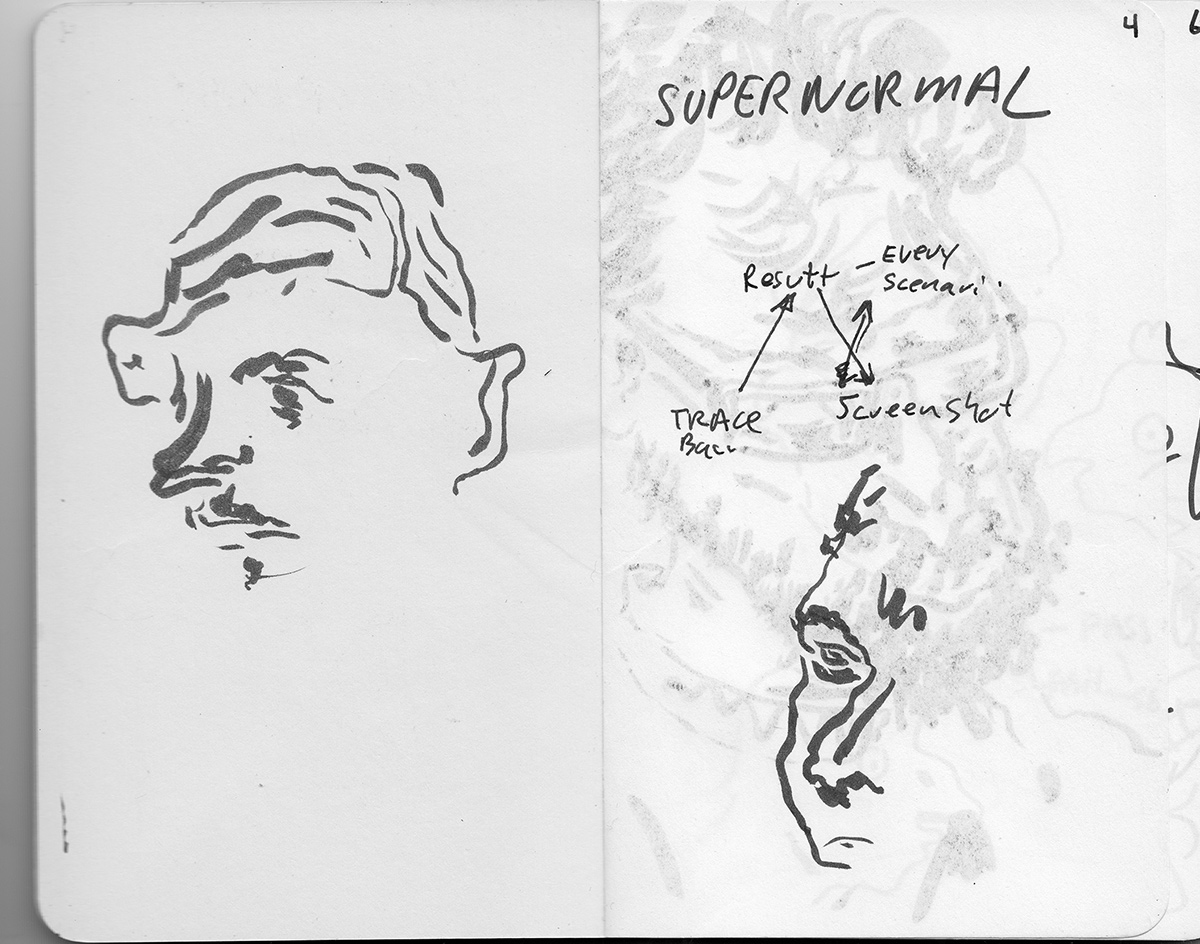 4 6
SUPERNORMAL
Result - Every
Scenari..
Screenshot
TRACE
Bac..